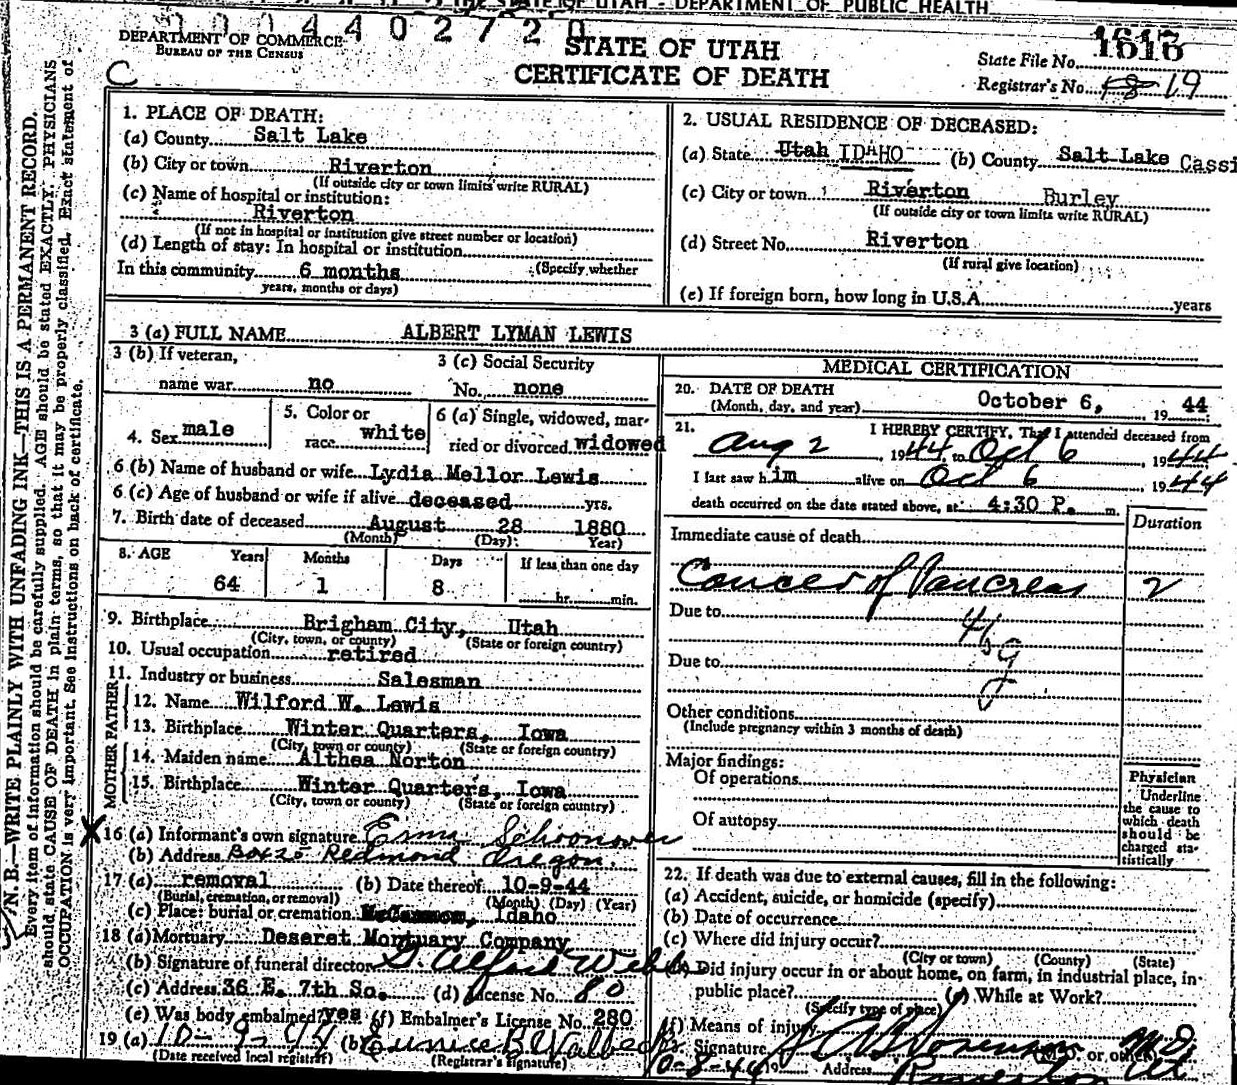 THE STATE OF UTAH - DEPARTMENT OF PUBLIC HEALTH
0 0 0 4 4 0 2 7 2 0
DEPARTMENT OF COMMERCE
BUREAU OF THE CENSUS
C
STATE OF UTAH
CERTIFICATE OF DEATH
State File No. 1616
Registrar's No. 18 19
N. B.—WRITE PLAINLY WITH UNFADING INK—THIS IS A PERMANENT RECORD.
Every item of information should be carefully supplied. AGE should be stated EXACTLY. PHYSICIANS
should state CAUSE OF DEATH in plain terms, so that it may be properly classified. Exact statement of
OCCUPATION is very important. See instructions on back of certificate.
1. PLACE OF DEATH:
(a) County Salt Lake
(b) City or town Riverton
(If outside city or town limits write RURAL)
(c) Name of hospital or institution:
Riverton
(If not in hospital or institution give street number or location)
(d) Length of stay: In hospital or institution
In this community 6 months (Specify whether
years, months or days)
2. USUAL RESIDENCE OF DECEASED:
(a) State Utah IDAHO (b) County Salt Lake Cassi
(c) City or town Riverton Burley
(If outside city or town limits write RURAL)
(d) Street No. Riverton
(If rural give location)
(e) If foreign born, how long in U.S.A. years
3 (a) FULL NAME ALBERT LYMAN LEWIS
3 (b) If veteran,
name war no
3 (c) Social Security
No. none
4. Sex male
5. Color or
race white
6 (a) Single, widowed, mar-
ried or divorced widowed
6 (b) Name of husband or wife Lydia Mellor Lewis
6 (c) Age of husband or wife if alive deceased yrs.
7. Birth date of deceased August 28 1880
(Month) (Day) Year)
8. AGE Years Months Days If less than one day
64 1 8 hr. min.
9. Birthplace Brigham City, Utah
(City, town, or county) (State or foreign country)
10. Usual occupation retired
11. Industry or business Salesman
FATHER
12. Name Wilford W. Lewis
13. Birthplace Winter Quarters, Iowa
(City, town or county) (State or foreign country)
MOTHER
14. Maiden name Althea Norton
15. Birthplace Winter Quarters, Iowa
(City, town or county) (State or foreign country)
X 16 (a) Informant's own signature Erma Schoonover
(b) Address Box 25 Redmond Oregon.
17 (a) removal (b) Date thereof 10-9-44
(Burial, cremation, or removal) (Month) (Day) (Year)
(c) Place: burial or cremation Idaho
18 (a) Mortuary Deseret Mortuary Company
(b) Signature of funeral director D. Alfred Webb
(c) Address 36 E. 7th So. (d) License No. 80
(e) Was body embalmed? yes (f) Embalmer's License No. 280
19 (a) 10-9-44 (b) Eunice B.
(Date received local registrar) (Registrar's signature)
MEDICAL CERTIFICATION
20. DATE OF DEATH
(Month, day, and year) October 6, 19 44
21. I HEREBY CERTIFY, That I attended deceased from
Aug 2, 1944, to Oct 6, 1944
I last saw h im alive on Oct 6 1944
death occurred on the date stated above, at 4:30 P. m.
Duration
Immediate cause of death
Cancer of Pancreas 2
Due to
46g
Due to
Other conditions
(Include pregnancy within 3 months of death)
Major findings:
Of operations
Of autopsy
Physician
Underline
the cause to
which death
should be
charged sta-
tistically
22. If death was due to external causes, fill in the following:
(a) Accident, suicide, or homicide (specify)
(b) Date of occurrence
(c) Where did injury occur?
(City or town) (County) (State)
Did injury occur in or about home, on farm, in industrial place, in
public place? (e) While at Work?
(Specify type of place)
(f) Means of injury
Signature Sorenson M.D.
(M.D. or other)
10-8-44 Address Riverton Ut